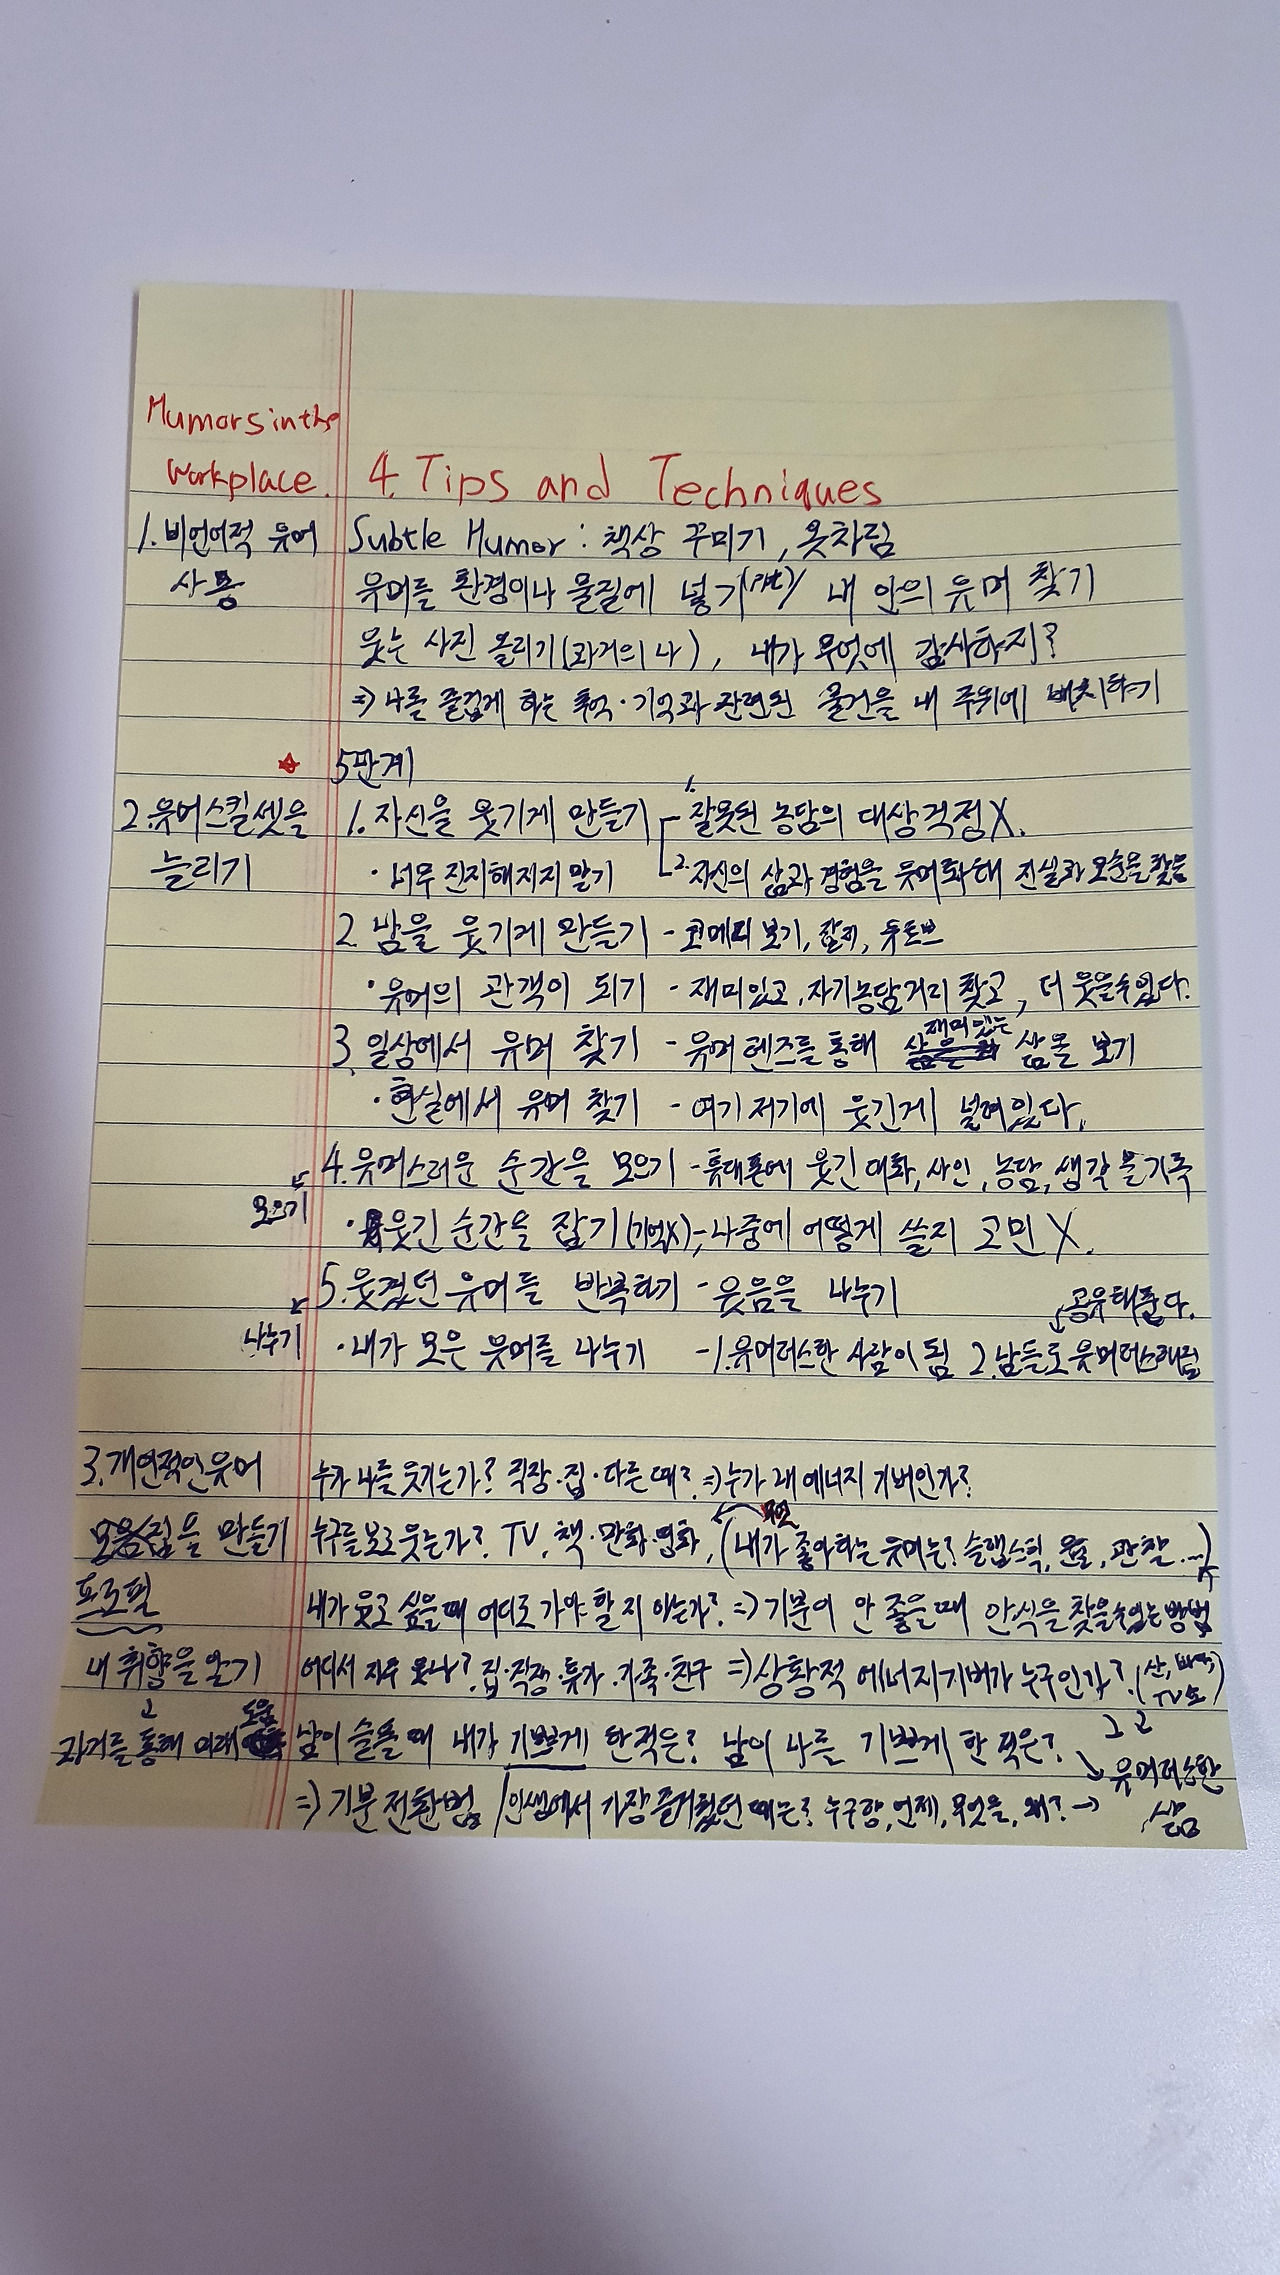 Humors in the
Workplace.
4. Tips and Techniques
1.비언어적 유머
사용
Subtle Humor : 책상 꾸미기, 옷차림
유머를 환경이나 물질에 넣기 / 내 안의 유머 찾기
웃는 사진 올리기(과거의 나), 내가 무엇에 감사하지?
⇒ 나를 즐겁게 하는 추억·기억과 관련된 물건을 내 주위에 배치하기
☆ 5단계
2. 유머스킬셋을
늘리기
1. 자신을 웃기게 만들기 - 1. 잘못된 농담의 대상걱정X.
· 너무 진지해지지 말기 2. 자신의 삶과 경험을 유머화해 진실과 모순을 찾음
2. 남을 웃기게 만들기 - 코메디 보기, 유토브
· 유머의 관객이 되기 - 재미있고, 자기농담거리 찾고, 더 웃을수있다.
3. 일상에서 유머 찾기 - 유머렌즈를 통해 재미있는 삶을 보기
· 현실에서 유머 찾기 - 여기저기에 웃긴게 널려있다.
4. 유머스러운 순간을 모으기 - 휴대폰에 웃긴 대화, 사인, 농담, 생각 을 기록
모으기
· 웃긴 순간을 잡기(기억X), 나중에 어떻게 쓸지 고민 X.
5. 웃겼던 유머를 반복하기 - 웃음을 나누기
공유해준다.
나누기
· 내가 모은 유머를 나누기 - 1. 유머러스한 사람이 됨 2. 남들도 유머러스해짐
3. 개인적인 유머
모음집을 만들기
프로필
내 취향을 알기
과거를 통해 미래 도움
누가 나를 웃기는가? 직장·집·다른 때? ⇒ 누가 내 에너지 기버인가?
누구를 보고 웃는가? TV, 책·만화·영화, (내가 좋아하는 유머는? 슬랩스틱, 관찰...)
무엇
내가 웃고 싶을때 어디로 가야 할 지 아는가? ⇒ 기분이 안 좋을때 안식을 찾을수있는 방법
어디서 자주 웃나? 집·직장·휴가·가족·친구 ⇒ 상황적 에너지기버가 누구인가?
남이 슬플 때 내가 기쁘게 한적은? 남이 나를 기쁘게 한 적은?
⇒ 기분전환법 / 인생에서 가장 즐거웠던 때는? 누구랑, 언제, 무엇을, 왜? →
유머러스한
삶